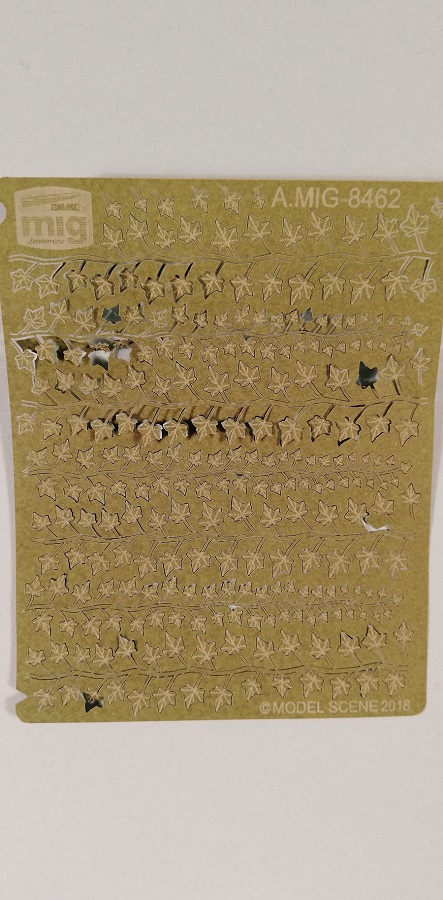 A.MIG-8462
AMMO
mig
jimenez
©MODEL SCENE 2018